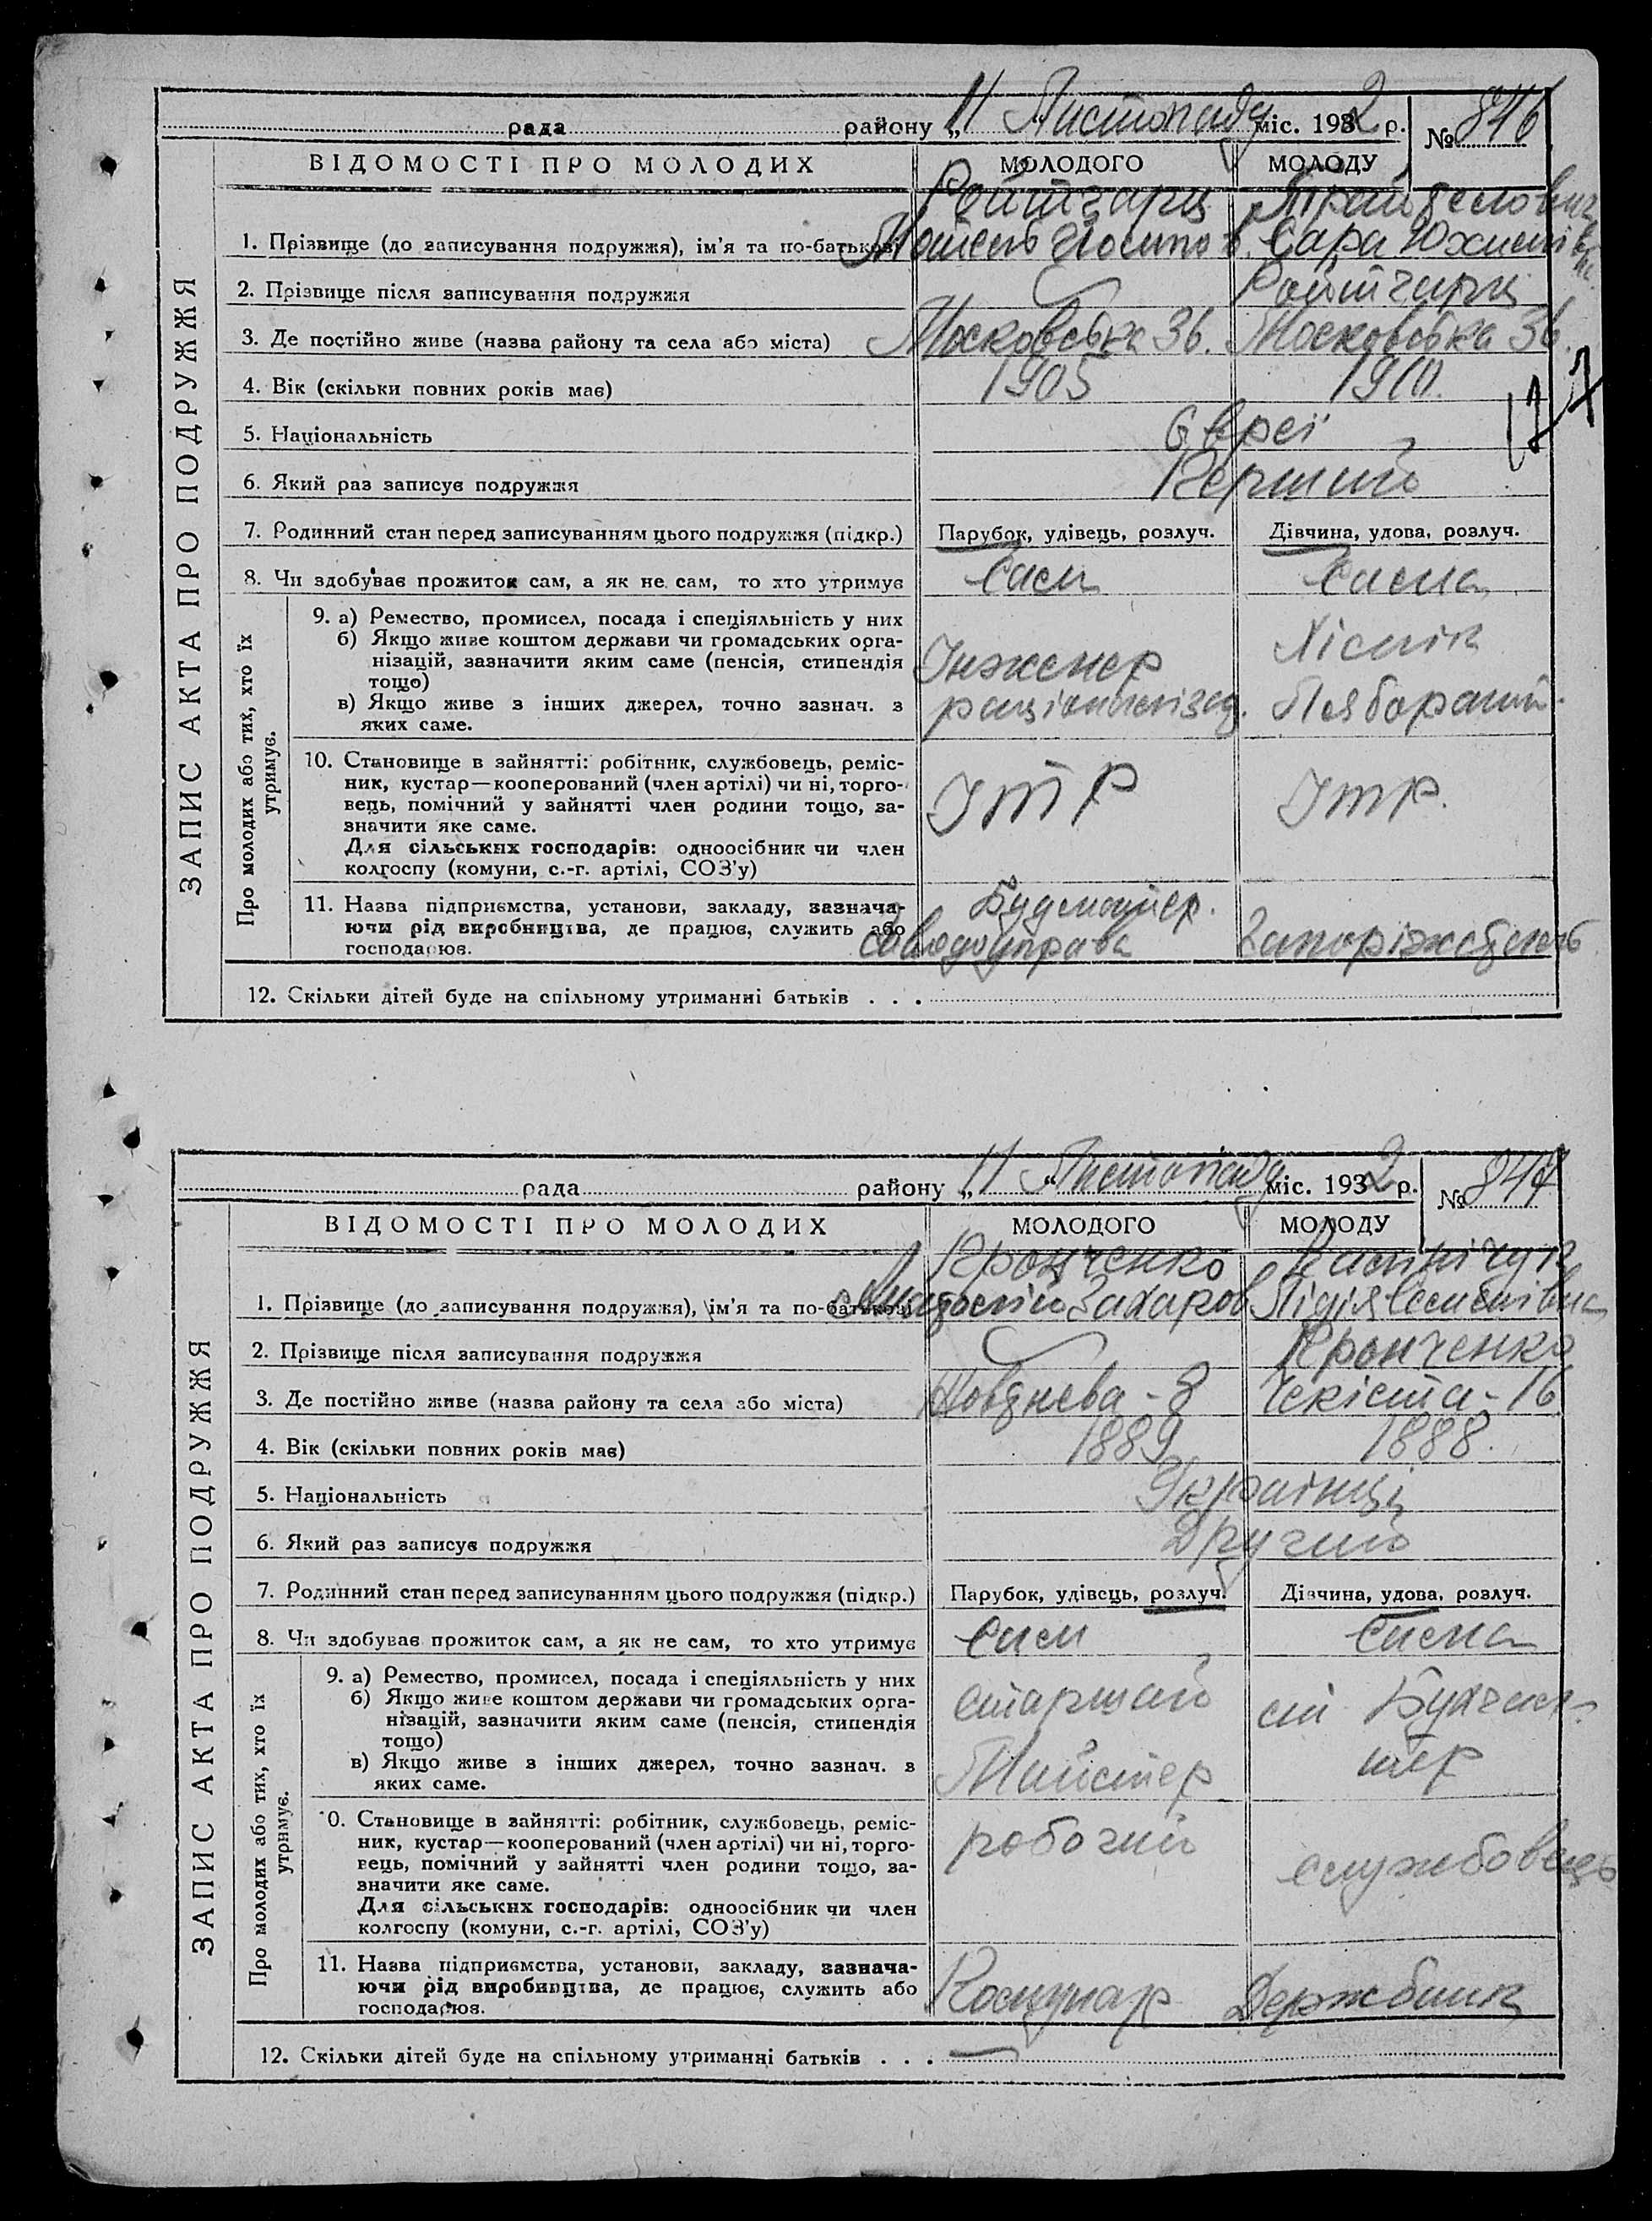 рада району „11“ Листопаду міс. 1932 р. № 846
ВІДОМОСТІ ПРО МОЛОДИХ МОЛОДОГО МОЛОДУ
ЗАПИС АКТА ПРО ПОДРУЖЖЯ
Ройтгарц
1. Прізвище (до записування подружжя), ім'я та по-батькові Мойсей Йосипов. Сара
2. Прізвище після записування подружжя Ройтгарц
3. Де постійно живе (назва району та села або міста) Московська 36. Московська 36.
4. Вік (скільки повних років має) 1905 1910.
5. Національність Євреї
6. Який раз записує подружжя Перший
7. Родинний стан перед записуванням цього подружжя (підкр.) Парубок, удівець, розлуч. Дівчина, удова, розлуч.
8. Чи здобував прожиток сам, а як не сам, то хто утримує Сам Сама
Про молодих або тих, хто їх утримує.
9. а) Ремество, промисел, посада і спеціяльність у них
б) Якщо живе коштом держави чи громадських орга-
нізацій, зазначити яким саме (пенсія, стипендія
тощо)
в) Якщо живе з інших джерел, точно зазнач. з
яких саме.
Інженер Хімік
раціоналізац. Лаборант.
10. Становище в зайнятті: робітник, службовець, реміс-
ник, кустар—кооперований (член артілі) чи ні, торго-
вець, помічний у зайнятті член родини тощо, за-
значити яке саме.
Для сільських господарів: одноосібник чи член
колгоспу (комуни, с.-г. артілі, СОЗ'у)
ІТР ІТР.
11. Назва підприємства, установи, закладу, зазнача-
ючи рід виробництва, де працює, служить або
господарює.
Заводоуправа Запоріжсталь
12. Скільки дітей буде на спільному утриманні батьків . . .
рада району „11“ Листопаду міс. 1932 р. № 847
ВІДОМОСТІ ПРО МОЛОДИХ МОЛОДОГО МОЛОДУ
ЗАПИС АКТА ПРО ПОДРУЖЖЯ
Кронченко
1. Прізвище (до записування подружжя), ім'я та по-батькові Захаров. Лідія Семенівна
2. Прізвище після записування подружжя Кронченко
3. Де постійно живе (назва району та села або міста) Жовднева - 8 Чекіста - 16
4. Вік (скільки повних років має) 1889 1888.
5. Національність Українці
6. Який раз записує подружжя Другий
7. Родинний стан перед записуванням цього подружжя (підкр.) Парубок, удівець, розлуч. Дівчина, удова, розлуч.
8. Чи здобував прожиток сам, а як не сам, то хто утримує Сам Сама
Про молодих або тих, хто їх утримує.
9. а) Ремество, промисел, посада і спеціяльність у них
б) Якщо живе коштом держави чи громадських орга-
нізацій, зазначити яким саме (пенсія, стипендія
тощо)
в) Якщо живе з інших джерел, точно зазнач. з
яких саме.
старший ст Бухгал-
Майстер тер
10. Становище в зайнятті: робітник, службовець, реміс-
ник, кустар—кооперований (член артілі) чи ні, торго-
вець, помічний у зайнятті член родини тощо, за-
значити яке саме.
Для сільських господарів: одноосібник чи член
колгоспу (комуни, с.-г. артілі, СОЗ'у)
робочий службовець
11. Назва підприємства, установи, закладу, зазнача-
ючи рід виробництва, де працює, служить або
господарює.
Комунар Держбанк
12. Скільки дітей буде на спільному утриманні батьків . . . —